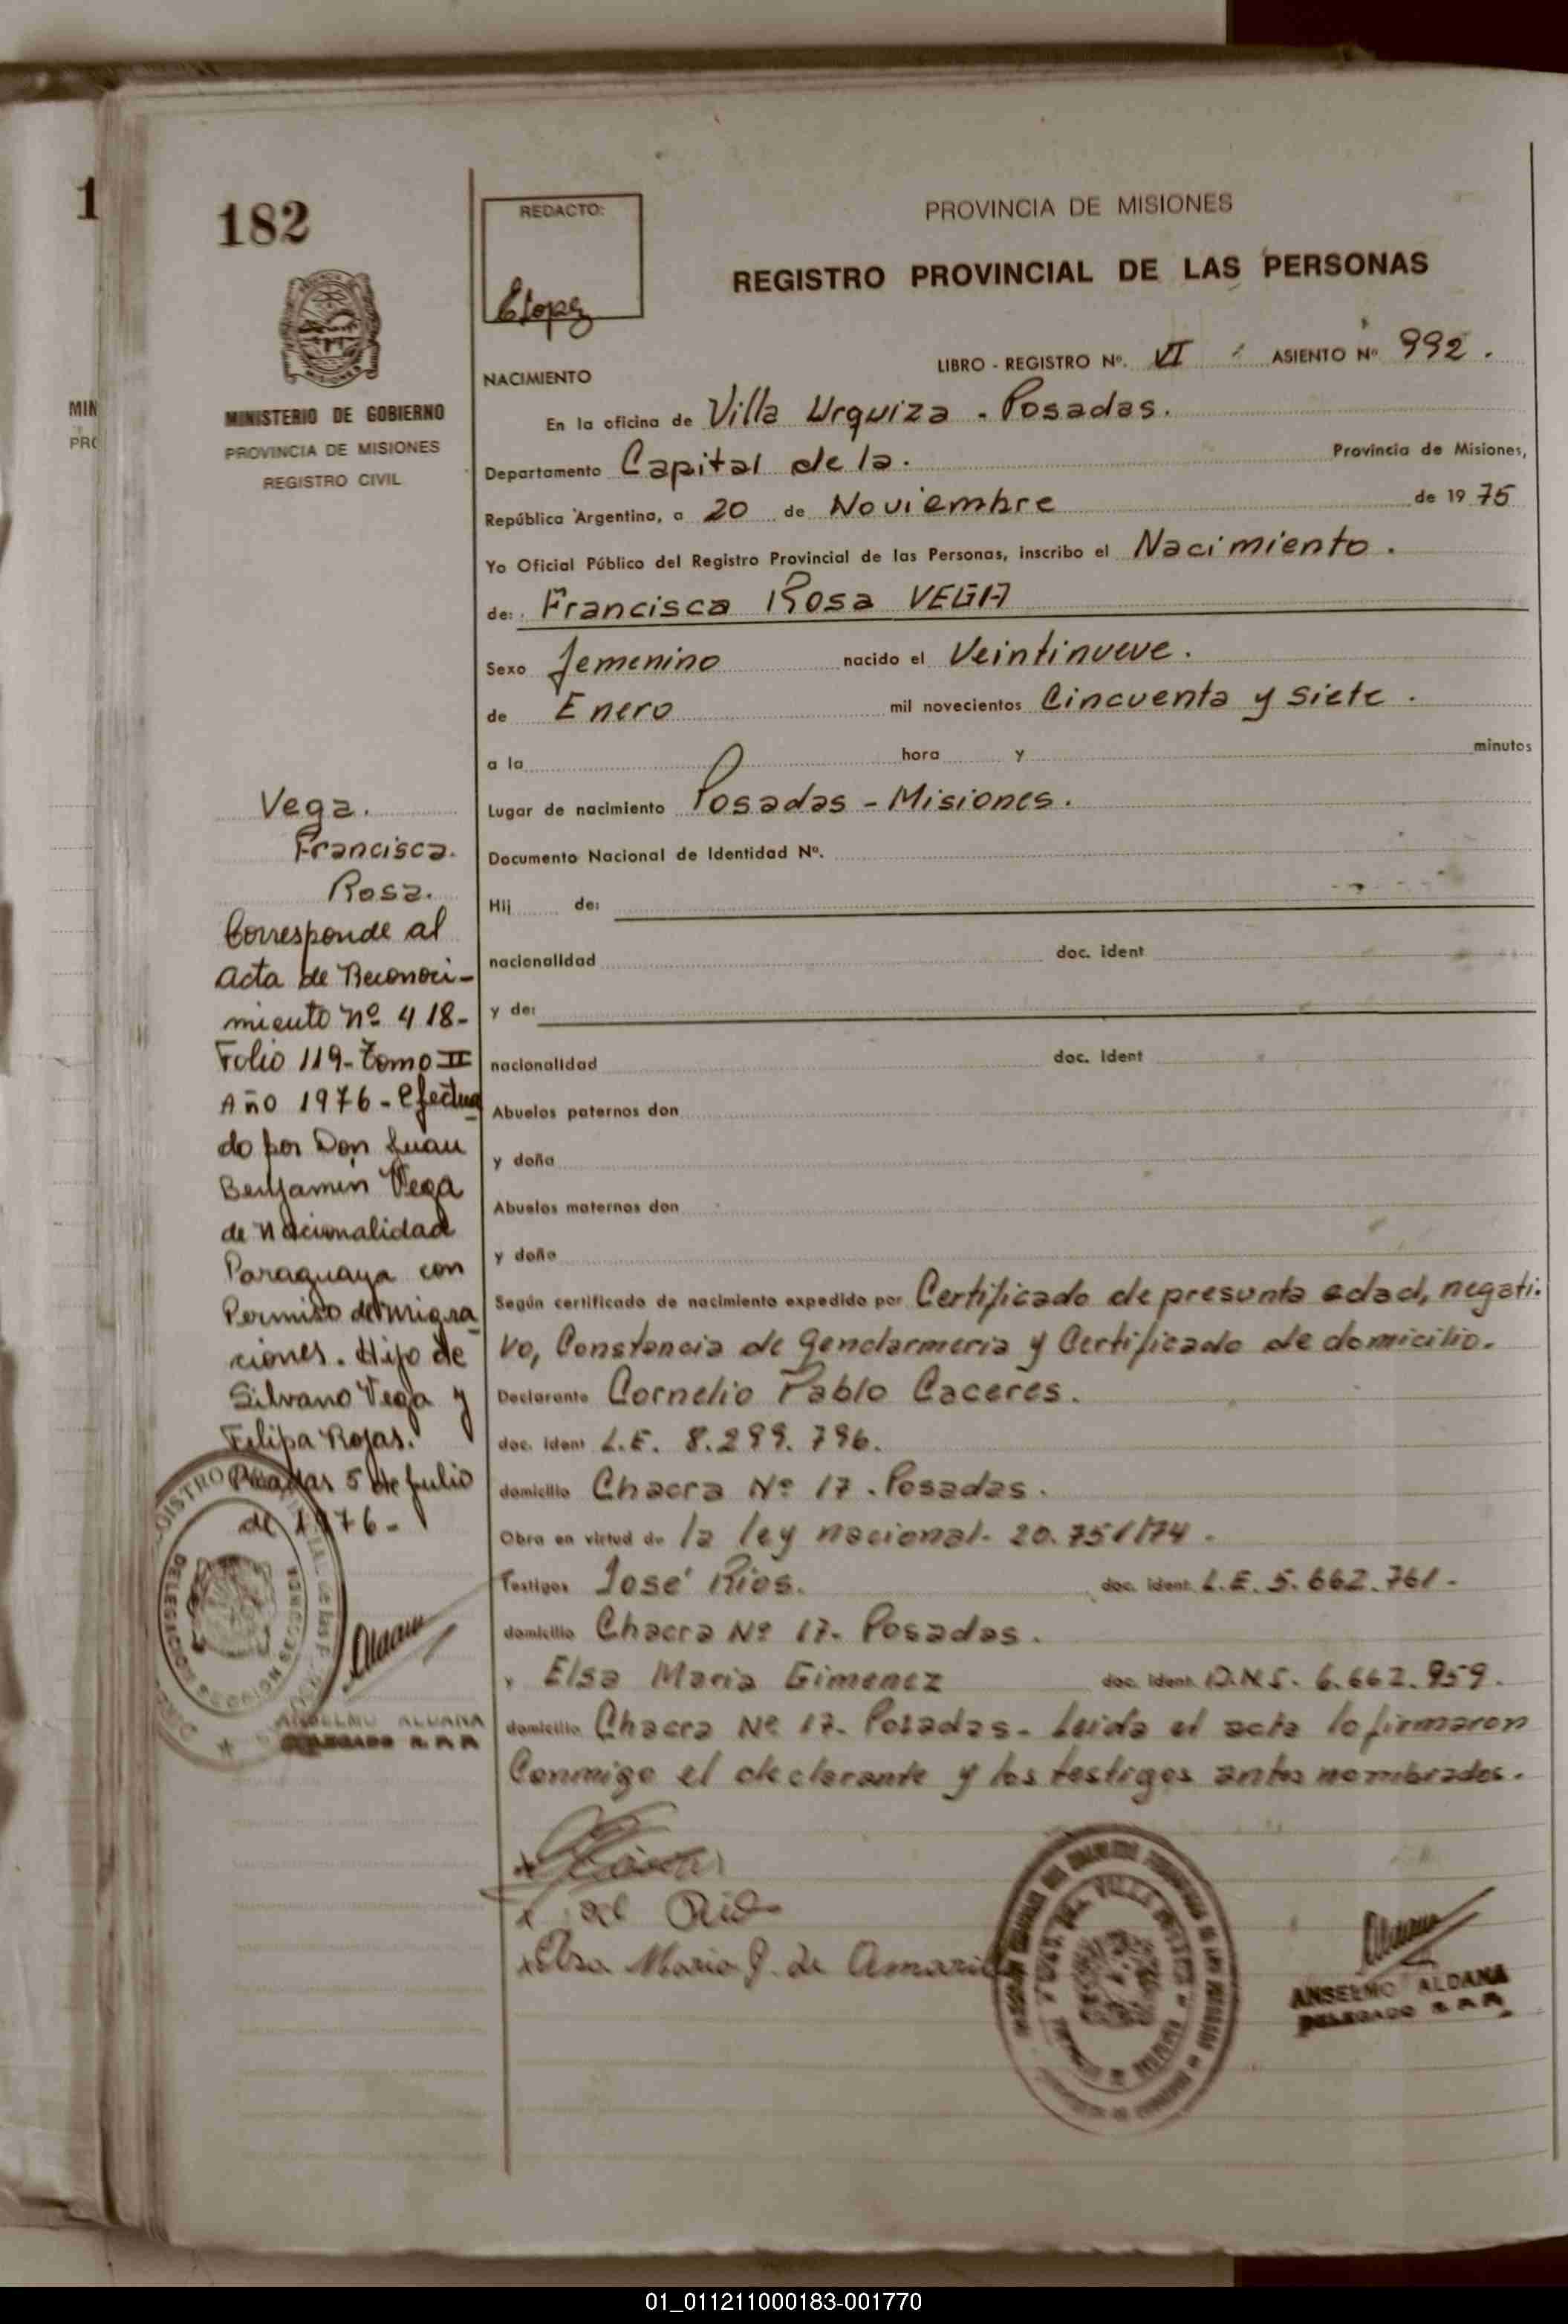 1
MIN
PRO
182
MINISTERIO DE GOBIERNO
PROVINCIA DE MISIONES
REGISTRO CIVIL
REDACTO:
Elopez
PROVINCIA DE MISIONES
REGISTRO PROVINCIAL DE LAS PERSONAS
LIBRO - REGISTRO Nº. VI ASIENTO Nº 992.
NACIMIENTO
En la oficina de Villa Urquiza - Posadas.
Departamento Capital de la. Provincia de Misiones,
República Argentina, a 20 de Noviembre de 1975
Yo Oficial Público del Registro Provincial de las Personas, inscribo el Nacimiento.
de: Francisca Rosa VEGA
Sexo femenino nacido el Veintinueve.
de Enero mil novecientos Cincuenta y siete.
a la hora y minutos
Lugar de nacimiento Posadas - Misiones.
Documento Nacional de Identidad Nº.
Hij de:
nacionalidad doc. ident
y de:
nacionalidad doc. ident
Abuelos paternos don
y doña
Abuelos maternos don
y doña
Según certificado de nacimiento expedido por Certificado de presunta edad, negati-
vo, Constancia de Gendarmeria y Certificado de domicilio.
Declarante Cornelio Pablo Caceres.
doc. ident L.E. 8.299.796.
domicilio Chacra Nº 17. Posadas.
Obra en virtud de la ley nacional- 20.751/74.
Testigos José Rios. doc. ident. L.E. 5.662.761-
domicilio Chacra Nº 17- Posadas.
y Elsa Maria Gimenez doc. ident. D.N.I. 6.662.959.
domicilio Chacra Nº 17- Posadas- Leida el acta lo firmaron
Conmigo el declarante y los testigos antes nombrados.
Vega.
Francisca.
Rosa.
Corresponde al
acta de Reconoci-
miento Nº 418-
Folio 119- Tomo II
Año 1976 - Efectua
do por Don Juan
Benjamin Vega
de nacionalidad
Paraguaya con
Permiso de Migra
ciones. Hijo de
Silvano Vega y
Filipa Rojas.
Posadas 5 de Julio
de 1976-
Aldana
ANSELMO ALDANA
DELEGADO R.P.P.
Elsa Maria G. de Amari
Aldana
ANSELMO ALDANA
DELEGADO R.P.P.
01_011211000183-001770